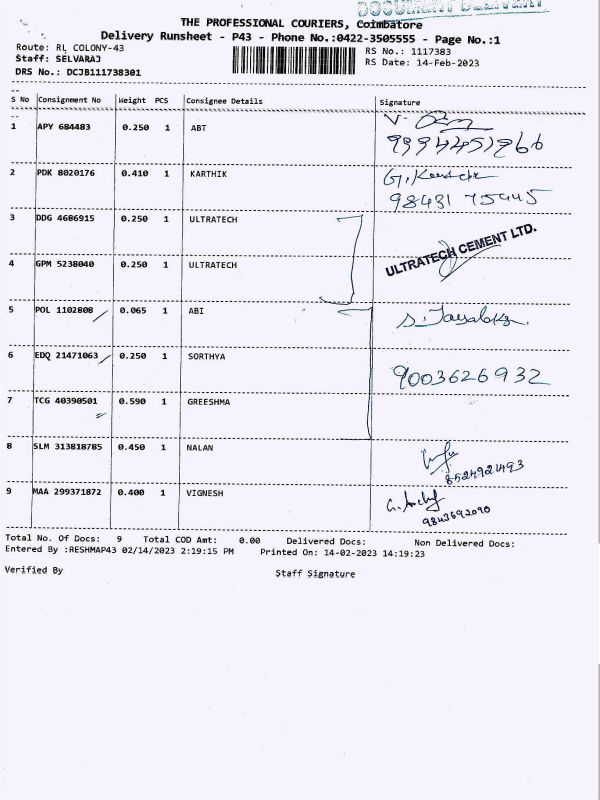 DOCUMENT DELIVERY
THE PROFESSIONAL COURIERS, Coimbatore
Delivery Runsheet - P43 - Phone No.:0422-3505555 - Page No.:1
Route: RL COLONY-43
RS No.: 1117383
Staff: SELVARAJ
RS Date: 14-Feb-2023
DRS No.: DCJB111738301
S No Consignment No Weight PCS Consignee Details Signature
1 APY 684483 0.250 1 ABT
2 PDK 8020176 0.410 1 KARTHIK
G. Karthik
98431 75445
3 DDG 4686915 0.250 1 ULTRATECH
ULTRATECH CEMENT LTD.
4 GPM 5238040 0.250 1 ULTRATECH
5 POL 1102808 0.065 1 ABI
6 EDQ 21471063 0.250 1 SORTHYA
9003626932
7 TCG 40390501 0.590 1 GREESHMA
8 SLM 313818785 0.450 1 NALAN
8524921493
9 MAA 299371872 0.400 1 VIGNESH
9843692090
Total No. Of Docs: 9 Total COD Amt: 0.00 Delivered Docs: Non Delivered Docs:
Entered By :RESHMAP43 02/14/2023 2:19:15 PM Printed On: 14-02-2023 14:19:23
Verified By Staff Signature